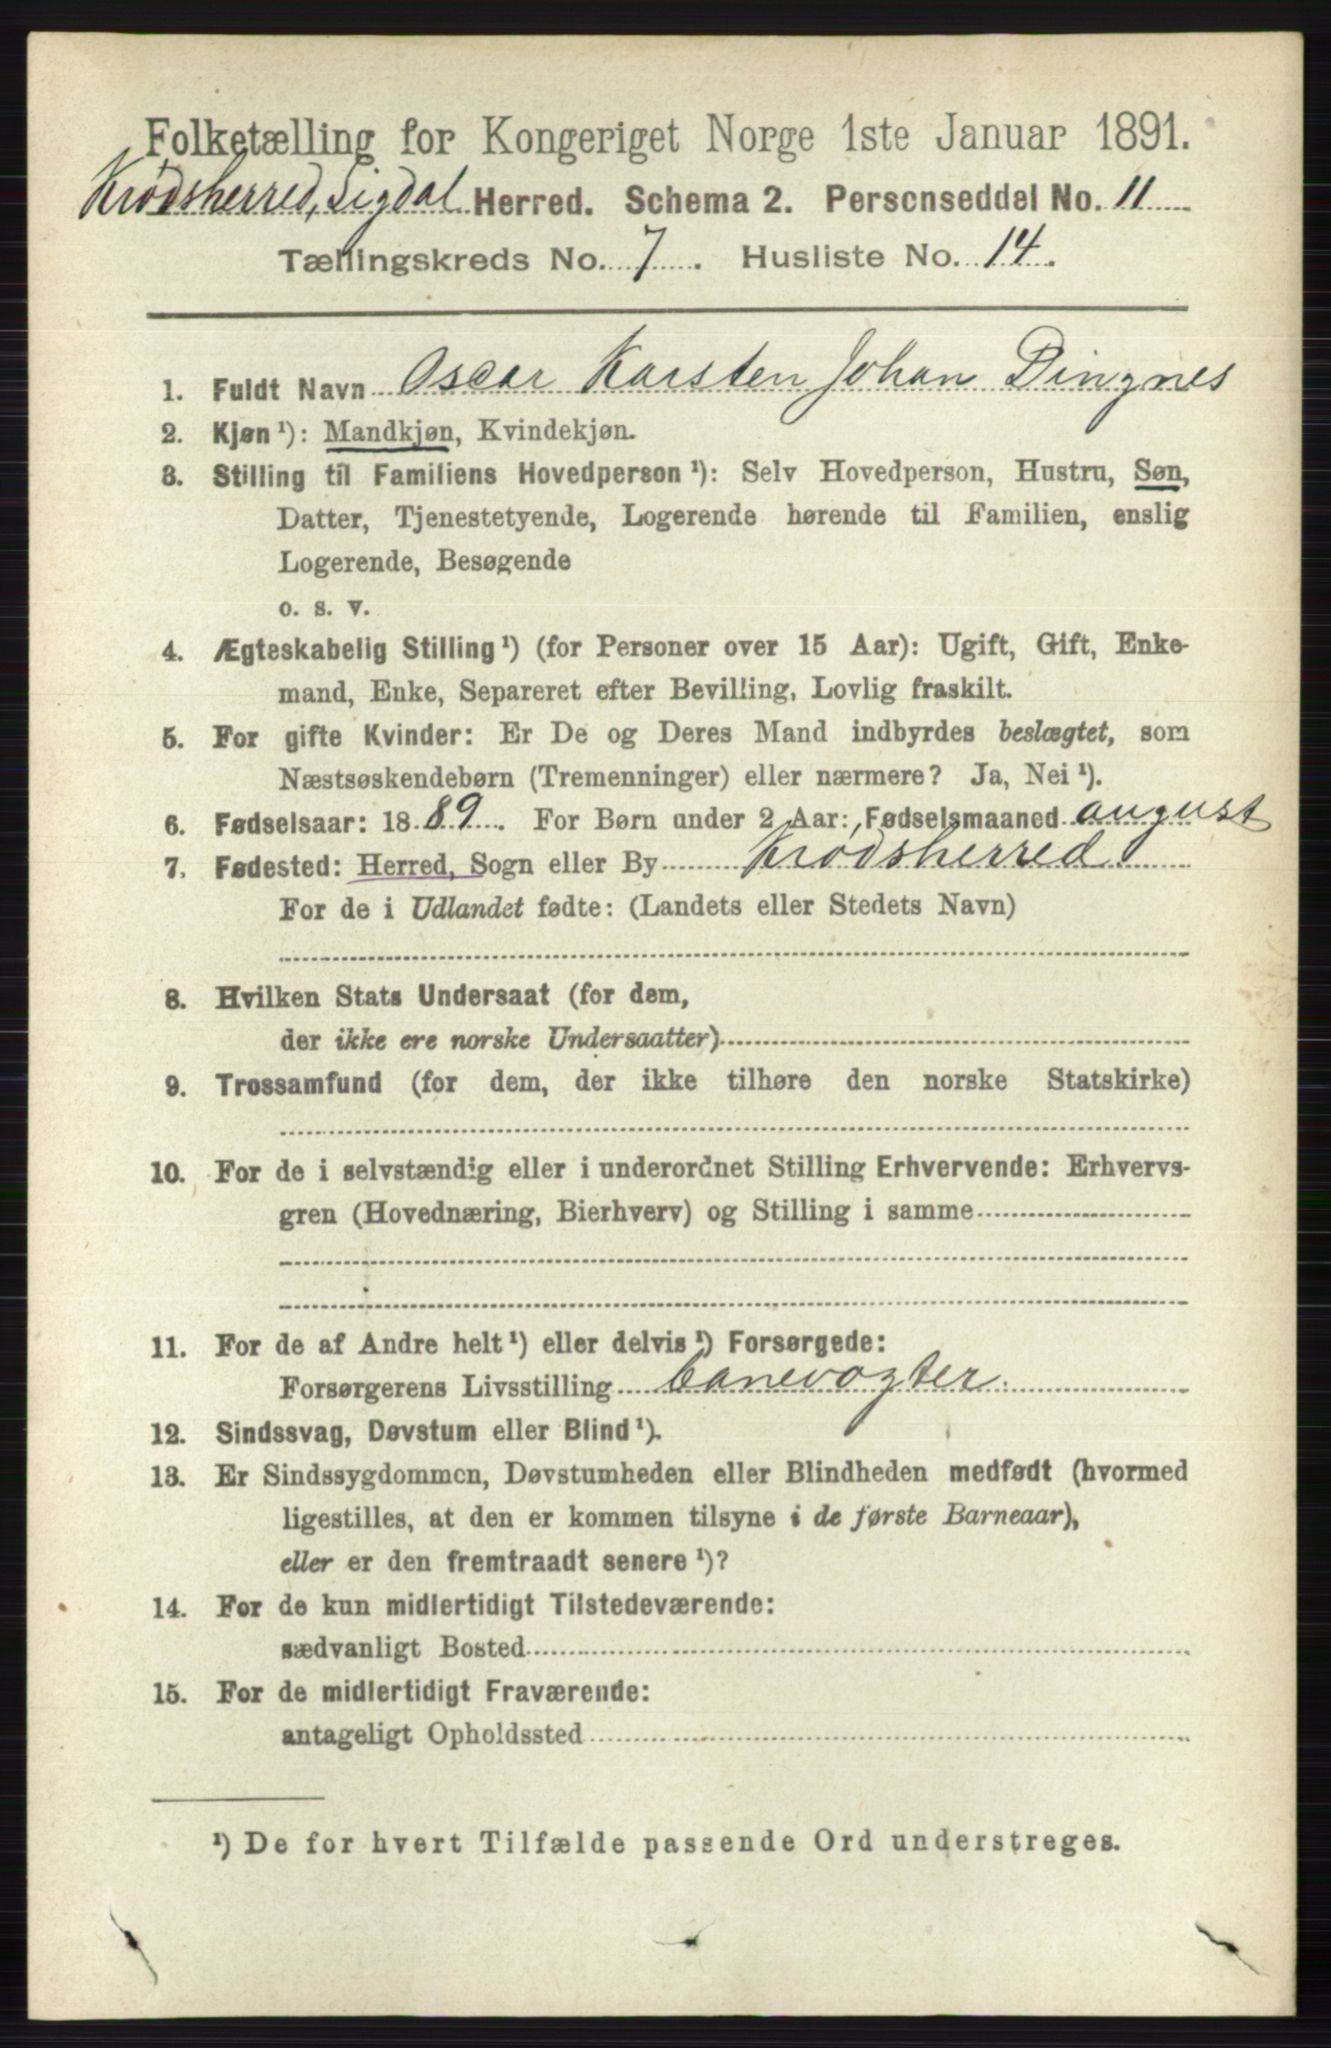 Folketælling for Kongeriget Norge 1ste Januar 1891.
Krødsherred, Sigdal Herred. Schema 2. Personseddel No. 11
Tællingskreds No. 7. Husliste No. 14.
1. Fuldt Navn Oscar Karsten Johan Dingnes
2. Kjøn ¹): Mandkjøn, Kvindekjøn.
3. Stilling til Familiens Hovedperson ¹): Selv Hovedperson, Hustru, Søn,
Datter, Tjenestetyende, Logerende hørende til Familien, enslig
Logerende, Besøgende
o. s. v.
4. Ægteskabelig Stilling ¹) (for Personer over 15 Aar): Ugift, Gift, Enke-
mand, Enke, Separeret efter Bevilling, Lovlig fraskilt.
5. For gifte Kvinder: Er De og Deres Mand indbyrdes beslægtet, som
Næstsøskendebørn (Tremenninger) eller nærmere? Ja, Nei ¹).
6. Fødselsaar: 1889. For Børn under 2 Aar: Fødselsmaaned august
7. Fødested: Herred, Sogn eller By Krødsherred
For de i Udlandet fødte: (Landets eller Stedets Navn)
8. Hvilken Stats Undersaat (for dem,
der ikke ere norske Undersaatter)
9. Trossamfund (for dem, der ikke tilhøre den norske Statskirke)
10. For de i selvstændig eller i underordnet Stilling Erhvervende: Erhvervs-
gren (Hovednæring, Bierhverv) og Stilling i samme
11. For de af Andre helt ¹) eller delvis ¹) Forsørgede:
Forsørgerens Livsstilling banevogter
12. Sindssvag, Døvstum eller Blind ¹).
13. Er Sindssygdommen, Døvstumheden eller Blindheden medfødt (hvormed
ligestilles, at den er kommen tilsyne i de første Barneaar),
eller er den fremtraadt senere ¹)?
14. For de kun midlertidigt Tilstedeværende:
sædvanligt Bosted
15. For de midlertidigt Fraværende:
antageligt Opholdssted
¹) De for hvert Tilfælde passende Ord understreges.